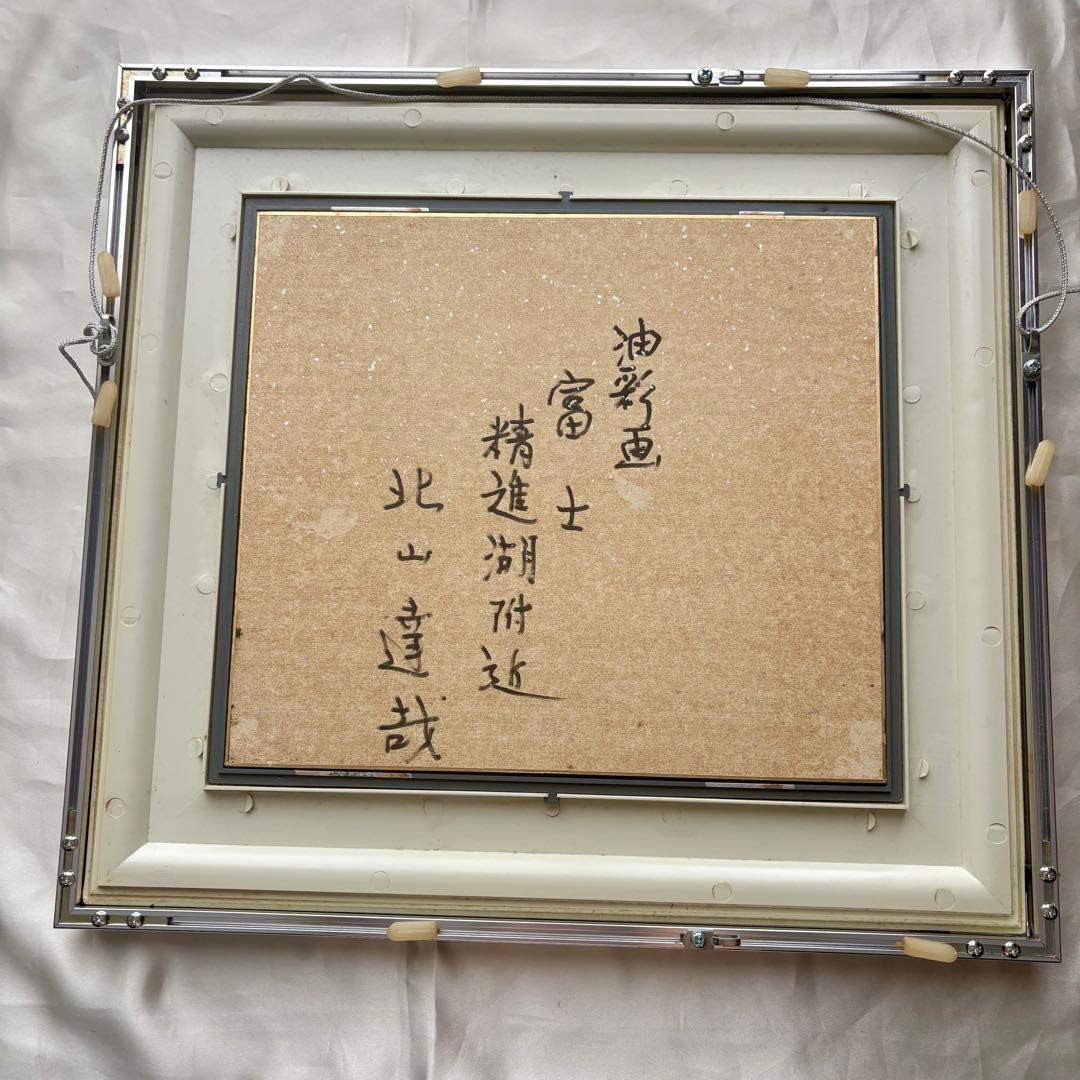 油彩画
富士
精進湖附近
北山達哉